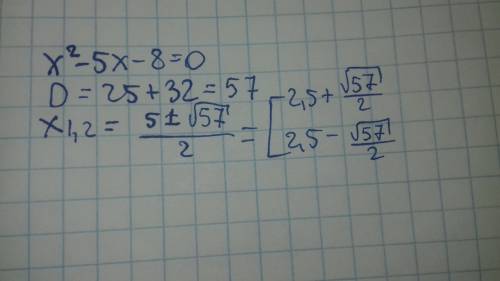 x² - 5x - 8 = 0
D = 25 + 32 = 57
x₁,₂ = (5 ± √57)/2 = [ 2,5 + √57/2
2,5 - √57/2